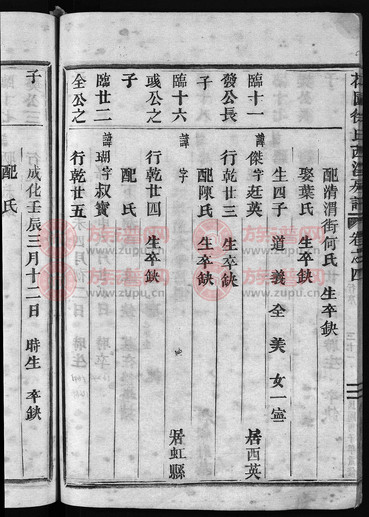 配淸渭街何氏 生卒缺
娶葉氏 生卒缺
生四子 道 義 全 美 女一寧
臨十一 諱傑字廷英 居西英
發公長 行乾廿三 生卒缺
子 配陳氏 生卒缺
臨十六 諱 字 居虹縣
彧公之 行乾廿四 生卒缺
子 配 氏
臨廿二 諱瑚字叔寳
全公之 行乾廿五 生卒缺
子 行 成化壬辰三月十二日 時生 卒缺
配 氏
族谱网
www.zupu.cn